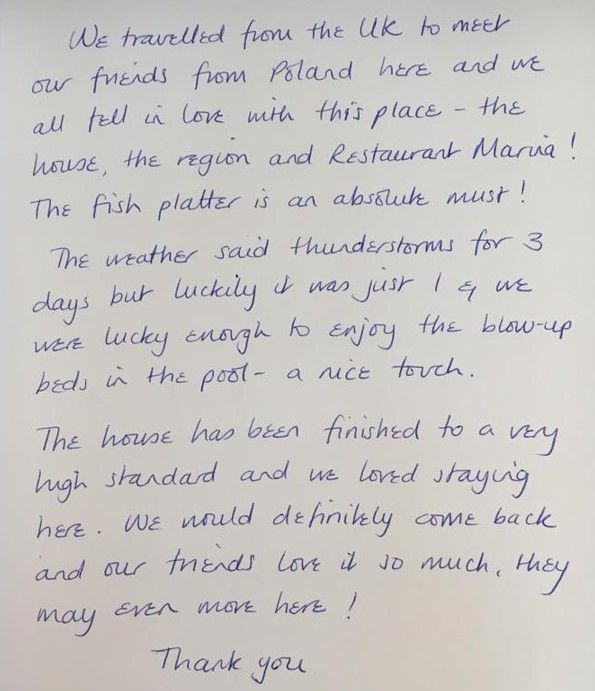 We travelled from the UK to meet
our friends from Poland here and we
all fell in love with this place - the
house, the region and Restaurant Marina!
The fish platter is an absolute must!
The weather said thunderstorms for 3
days but luckily it was just 1 & we
were lucky enough to enjoy the blow-up
beds in the pool - a nice touch.
The house has been finished to a very
high standard and we loved staying
here. We would definitely come back
and our friends love it so much, they
may even move here!
Thank you